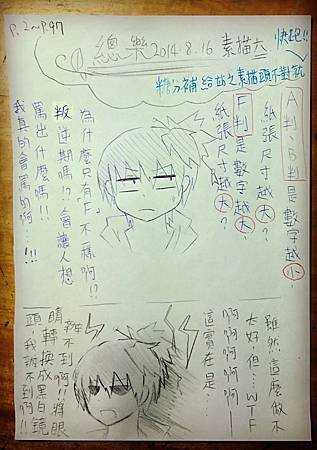 P.2~P.97
總樂 2014.8.16 素描六
快吃!!
糖分補給站之素描頭不對就
A判、B判是數字越小
紙張尺寸越大？
F判是數字越大
紙張尺寸越大？
為什麼只有「F」不一樣啊!!?
叛逆期嗎!?會讓人想
罵出什麼嗎!!
我真的會罵的啊…!!!
雖然這麼做不
太好但…WTF
啊啊啊啊啊
這實在是…
辨不到啊!!將眼
睛轉換成黑白鏡
頭我辨不到啊!!